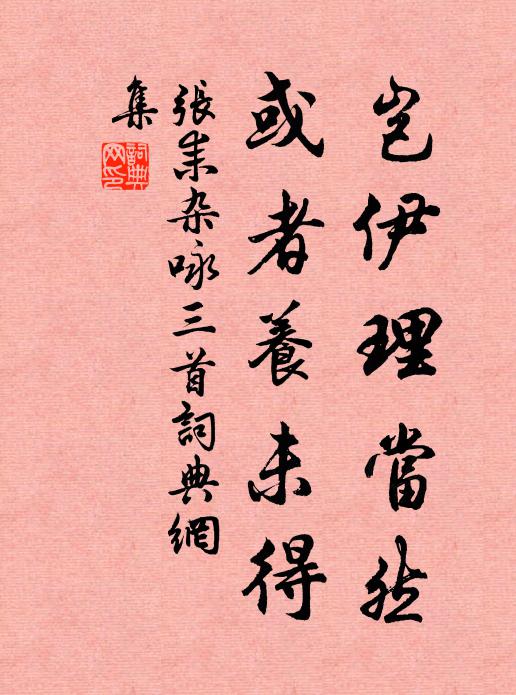 豈伊理當然
或者養未得
張耒杂咏三首詞典網
集
詞典網印